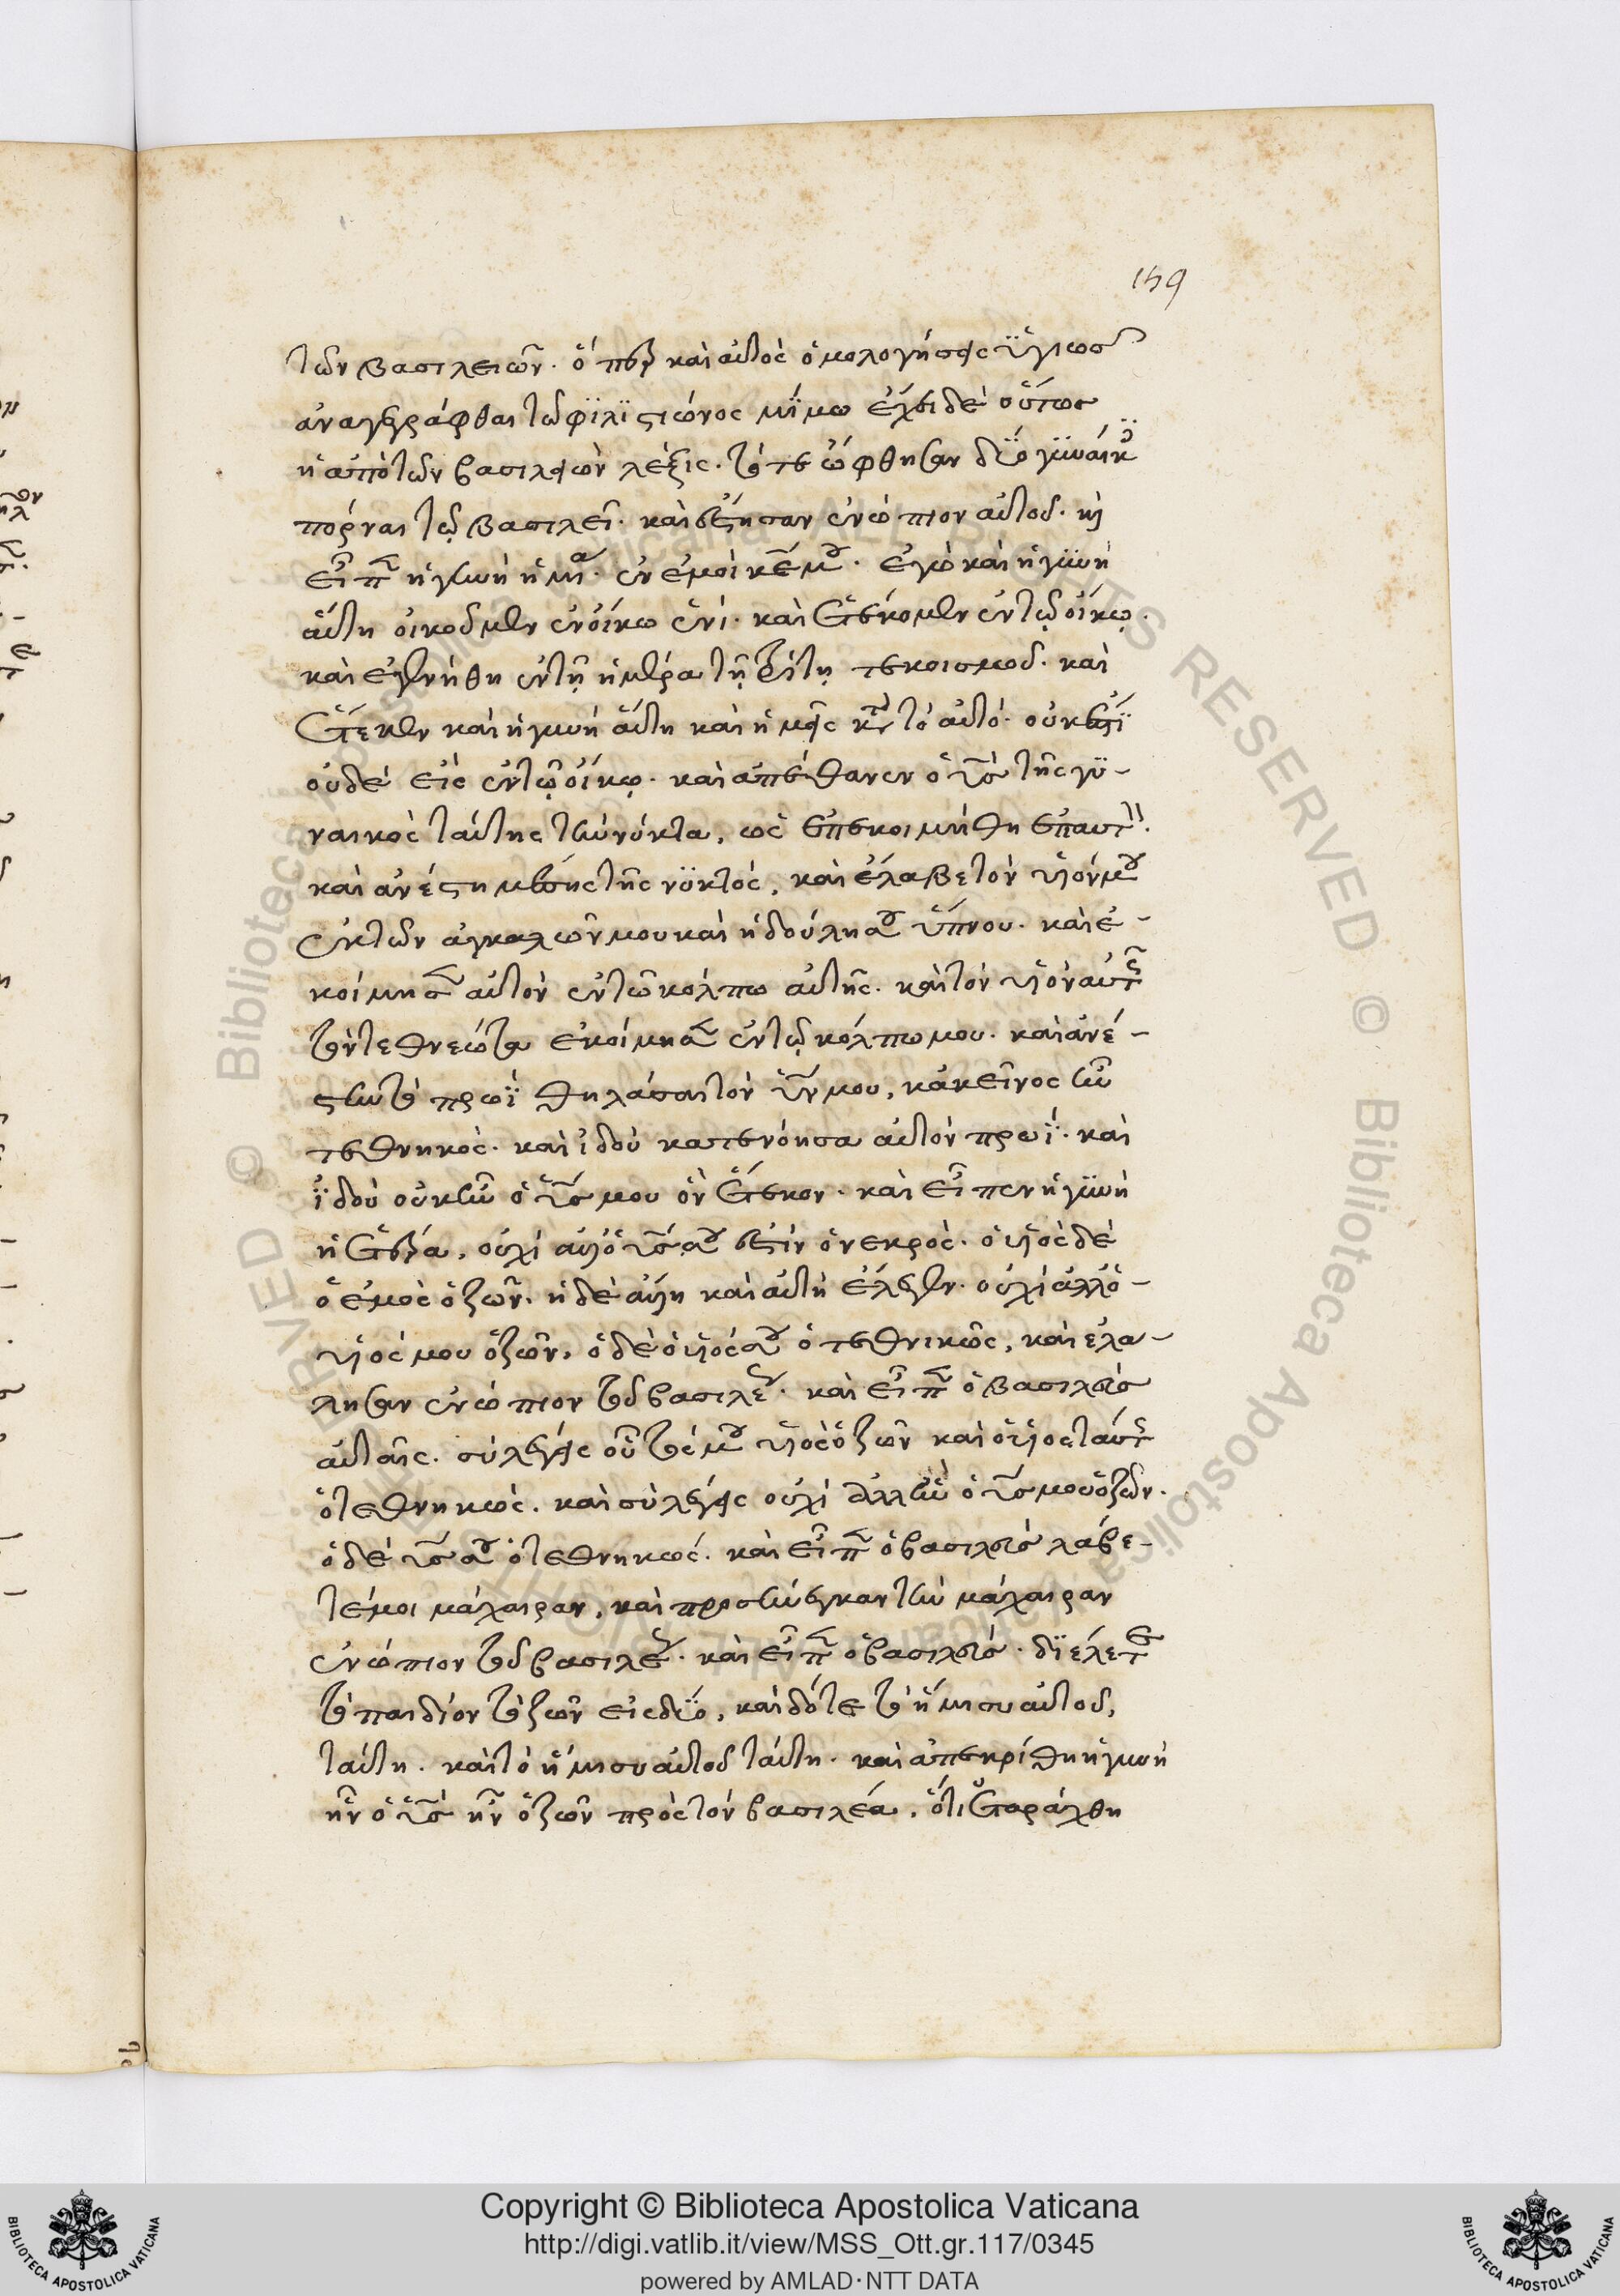 159
τῶν βασιλειῶν. ὅπερ καὶ αὐτὸς ὁμολογήσεις ὑγιῶς
ἀναγεγράφθαι τῶ φϊλϊστιώνος μΐμω ἔχει δὲ οὕτως
ἡ ἀπὸ τῶν βασιλειῶν λέξις. τότε ὤφθησαν δύο γυναῖκ
πόρναι τῷ βασιλεῖ. καὶ ἔστησαν ἐνώπιον αὐτοῦ. κὶ
εἶπ ἡ γυνὴ ἡ μία. ἐν ἐμοὶ κε μου. ἐγὼ καὶ ἡ γυνὴ
αὕτη οἰκοῦμεν ἐν οἴκω ἑνί. καὶ ἐτέκομεν ἐν τῷ οἴκῳ.
καὶ ἐγενήθη ἐν τῇ ἡμέρα τῇ τρίτῃ τεκούσης μου. καὶ
ἔτεκεν καὶ ἡ γυνὴ αὕτη καὶ ἡμεῖς κατὰ τὸ αὐτό. οὐκ ἔστϊ
οὐδὲ εἷς ἐν τῷ οἴκῳ. καὶ ἀπέθανεν ὁ υἱὸς τῆς γϋ-
ναικὸς ταύτης τὴν νύκτα, ὡς ἐπεκοιμήθη ἐπ αυτ.
καὶ ἀνέστη μέσης τῆς νϋκτός, καὶ ἔλαβε τὸν υἱόν μου
ἐκ τῶν ἀγκαλῶν μου καὶ ἡ δούλη σου ὕπνου. καὶ ἐ-
κοίμησ αὐτὸν ἐν τῶ κόλπω αὐτῆς. καὶ τὸν υἱὸν αὐτῆς
τὸν τεθνεῶτα ἐκοίμησ ἐν τῷ κόλπω μου. καὶ ἀνέ-
στην τὸ πρωῒ θηλάσαι τὸν υν μου, κἀκεῖνος ἦν
τεθνηκὸς. καὶ ἰδοὺ κατενόησα αὐτὸν πρωΐ. καὶ
ἰδοὺ οὐκ ἦν ὁ υς μου ὃν ἔτεκον. καὶ εἶπεν ἡ γυνὴ
ἡ ἑτέρα, οὐχὶ ἀλλ ὁ υς σου ἐστὶν ὁ νεκρὸς. ὁ υἱὸς δὲ
ὁ ἐμὸς ὁ ζῶν. ἡ δὲ ἄλλη καὶ αὐτὴ ἔλεγεν. οὐχὶ ἀλλ ὁ-
υἱός μου ὁ ζῶν, ὁ δὲ ὁ υἱός σου ὁ τεθνικῶς, καὶ ἐλά-
λησαν ἐνώπιον τοῦ βασιλέως. καὶ εἶπ ὁ βασιλεὺς
αὐταῖς. σὺ λέγεις οὗτός μου υἱὸς ὁ ζῶν καὶ ὁ υἱος ταύτης
ὁ τεθνηκὼς. καὶ σὺ λέγεις οὐχὶ ἀλλ ἢν ὁ υς μου ὁ ζῶν.
ὁ δὲ υς σου ὁ τεθνηκώς. καὶ εἶπ ὁ βασιλεύς λάβε-
τέ μοι μάχαιραν, καὶ προσήνεγκαν τὴν μάχαιραν
ἐνώπιον τοῦ βασιλέως. καὶ εἶπ ὁ βασιλεύς. δϊέλετε
τὸ παιδίον τὸ ζῶν εἰς δύο, καὶ δότε τὸ ἥμισυ αὐτοῦ,
ταύτη. καὶ τὸ ἥμισυ αὐτοῦ ταύτη. καὶ ἀπεκρίθη ἡ γυνὴ
ἧν ὁ υς ἦν ὁ ζῶν πρὸς τὸν βασιλέα. ὅτι ἐταράχθη
Copyright © Biblioteca Apostolica Vaticana
http://digi.vatlib.it/view/MSS_Ott.gr.117/0345
powered by AMLAD·NTT DATA